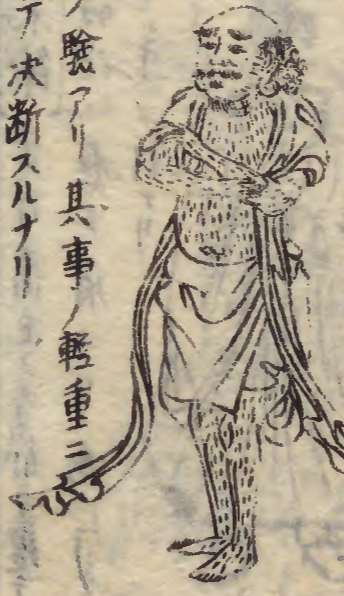 ノ驗アリ其事ノ輕重ニ
テ决断スルナリ